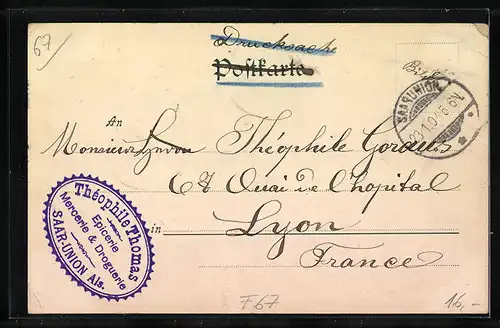 67
Drucksache
Postkarte
SAARUNION
An
Monsieur Théophile
67 Quai de l'hopital
in Lyon
France
Théophile Thomas
Epicerie
Mercerie & Droguerie
SAAR-UNION Als.
F67
16,-